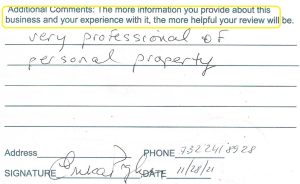 Additional Comments: The more information you provide about this
business and your experience with it, the more helpful your review will be.
very professional of
personal property
Address PHONE 7322418928
SIGNATURE DATE 11/28/21